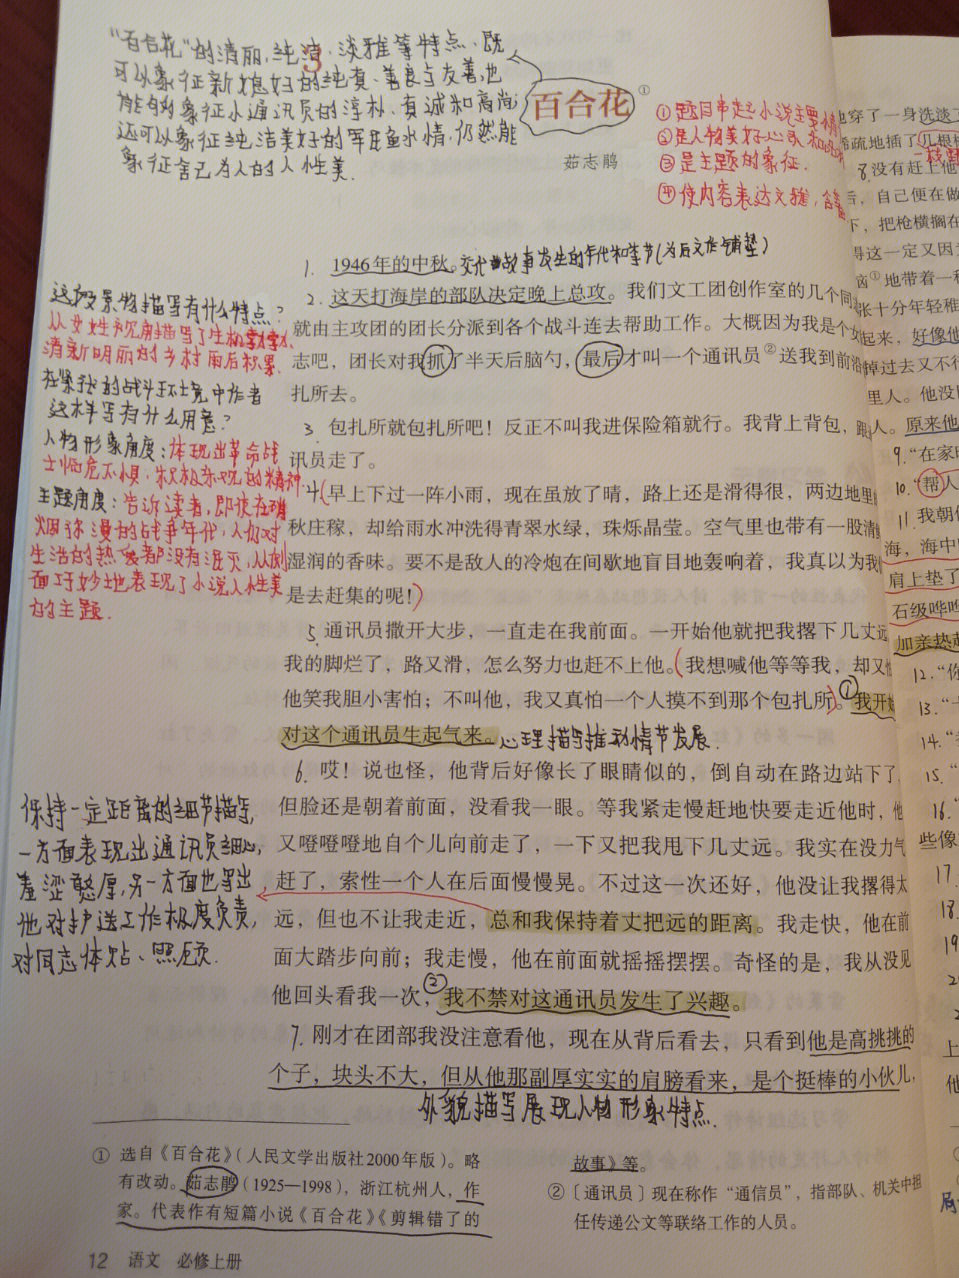 “百合花”的清丽、纯洁、淡雅等特点,既
可以象征新媳妇的纯真、善良与友善,也
能够象征小通讯员的淳朴、真诚和高尚,
还可以象征纯洁美好的军民鱼水情,仍然能
象征舍己为人的人性美.
3
百合花①
茹志鹃
①题目串起小说主要情
②是人物美好心灵和
③是主题的象征.
④使内容表达文雅,含蓄
1. 1946年的中秋。交代故事发生的年代和季节(为后文作铺垫)
2. 这天打海岸的部队决定晚上总攻。我们文工团创作室的几个同
就由主攻团的团长分派到各个战斗连去帮助工作。大概因为我是个女
志吧,团长对我抓了半天后脑勺,最后才叫一个通讯员②送我到前沿
扎所去。
3. 包扎所就包扎所吧!反正不叫我进保险箱就行。我背上背包,跟
讯员走了。
4.(早上下过一阵小雨,现在虽放了晴,路上还是滑得很,两边地里
秋庄稼,却给雨水冲洗得青翠水绿,珠烁晶莹。空气里也带有一股清
湿润的香味。要不是敌人的冷炮在间歇地盲目地轰响着,我真以为我
是去赶集的呢!)
5. 通讯员撒开大步,一直走在我前面。一开始他就把我撂下几丈远
我的脚烂了,路又滑,怎么努力也赶不上他。(我想喊他等等我,却又怕
他笑我胆小害怕;不叫他,我又真怕一个人摸不到那个包扎所)。①我开始
对这个通讯员生起气来。心理描写推动情节发展.
6. 哎!说也怪,他背后好像长了眼睛似的,倒自动在路边站下了
但脸还是朝着前面,没看我一眼。等我紧走慢赶地快要走近他时,他
又噔噔噔地自个儿向前走了,一下又把我甩下几丈远。我实在没力气
赶了,索性一个人在后面慢慢晃。不过这一次还好,他没让我撂得太
远,但也不让我走近,总和我保持着丈把远的距离。我走快,他在前
面大踏步向前;我走慢,他在前面就摇摇摆摆。奇怪的是,我从没见
他回头看我一次,②我不禁对这通讯员发生了兴趣。
7. 刚才在团部我没注意看他,现在从背后看去,只看到他是高挑挑的
个子,块头不大,但从他那副厚实实的肩膀看来,是个挺棒的小伙儿,
外貌描写展现人物形象特点.
这段景物描写有什么特点?
从女性视角描写了生机勃勃、
清新明丽的乡村雨后秋景.
在紧张的战斗环境中作者
这样写有什么用意?
人物形象角度:体现出革命战
士临危不惧、积极乐观的精神.
主题角度:告诉读者,即使在硝
烟弥漫的战争年代,人们对
生活的热爱都没有泯灭,从侧
面巧妙地表现了小说人性美
的主题.
保持一定距离的细节描写,
一方面表现出通讯员细心,
羞涩憨厚,另一方面也写出
他对护送工作极度负责,
对同志体贴、照顾.
① 选自《百合花》(人民文学出版社2000年版)。略
有改动。茹志鹃(1925—1998),浙江杭州人,作
家。代表作有短篇小说《百合花》《剪辑错了的
故事》等。
②〔通讯员〕现在称作“通信员”,指部队、机关中担
任传递公文等联络工作的人员。
12 语文 必修上册
也穿了一身洗淡了
稀疏地插了几根树
8. 没有赶上他
后,自己便在做
下,把枪横搁在
得这一定又因为
恼①地带着一种
张十分年轻稚
起来,好像他
掉过去又不行
里人。他没回
人。原来他
9. “在家时
10. “帮人
11. 我朝他
海,海中
肩上垫了
石级哗哗
加亲热起
12. “你
13. “
14. “
15. “
16. “
些像
17.
18.
19